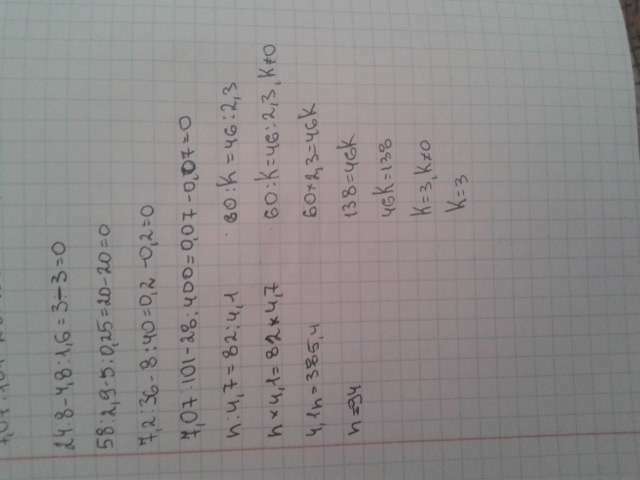 24:8-4,8:1,6=3-3=0
58:2,9-5:0,25=20-20=0
7,2:36-8:40=0,2-0,2=0
7,07:101-28:400=0,07-0,07=0
n:4,7=82:4,1
n×4,1=82×4,7
4,1n=385,4
n=94
60:K=46:2,3
60:K=46:2,3,K≠0
60×2,3=46K
138=46K
46K=138
K=3,K≠0
K=3